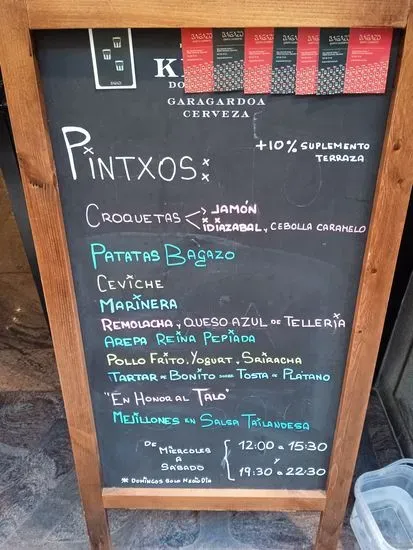 BAGAZO
BAGAZO BAGAZO BAGAZO BAGAZO BAGAZO BAGAZO
GARAGARDOA
CERVEZA
PINTXOS:
+10% SUPLEMENTO
TERRAZA
CROQUETAS
JAMÓN
IDIAZABAL Y CEBOLLA CARAMELO
PATATAS BAGAZO
CEVICHE
MARINERA
REMOLACHA Y QUESO AZUL DE TELLERIA
AREPA REINA PEPIADA
POLLO FRITO, YOGURT, SRIRACHA
TARTAR DE BONITO SOBRE TOSTA DE PLÁTANO
"EN HONOR AL TALO"
MEJILLONES EN SALSA TAILANDESA
DE MIÉRCOLES A SÁBADO
12:00 a 15:30
Y
19:30 a 22:30
* DOMINGOS SOLO MEDIODIA